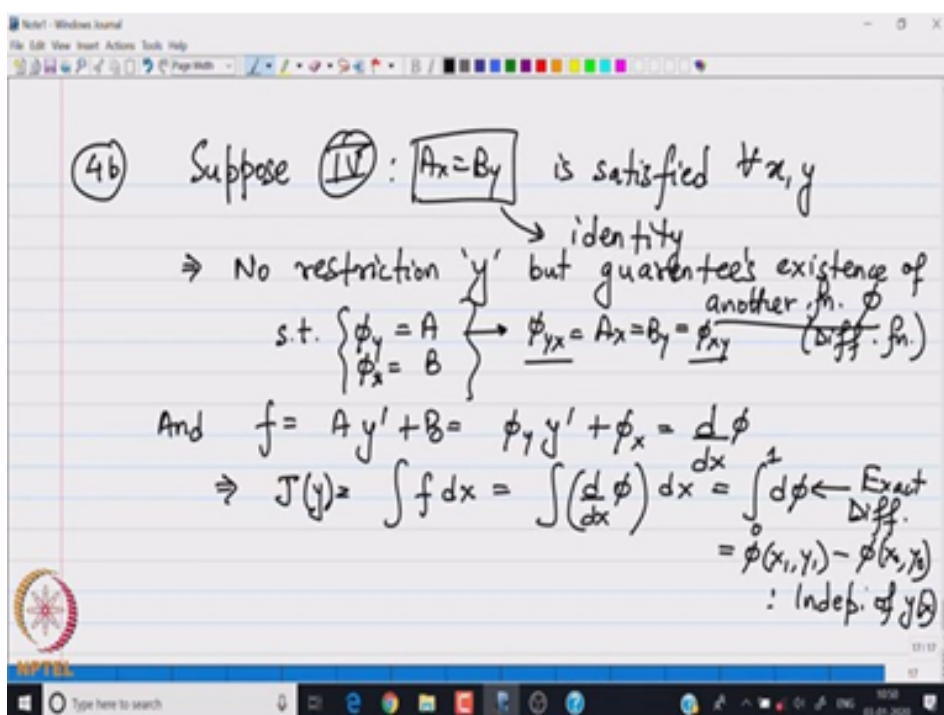 Note1 - Windows Journal
File Edit View Insert Actions Tools Help
Page Width
4b Suppose IV : Ax = By is satisfied ∀ x, y
identity
⇒ No restriction 'y' but guarentee's existence of
another fn. ϕ
s.t. { ϕy = A ϕx = B } → ϕyx = Ax = By = ϕxy (Diff. fn.)
And f = A y' + B = ϕy y' + ϕx = d/dx ϕ
⇒ J(y) = ∫ f dx = ∫ (d/dx ϕ) dx = ∫₀¹ dϕ ← Exact Diff.
= ϕ(x₁, y₁) − ϕ(x₀, y₀)
: Indep. of y(x)
17/17
NPTEL
17
Type here to search
ENG
10:50
03-01-2020